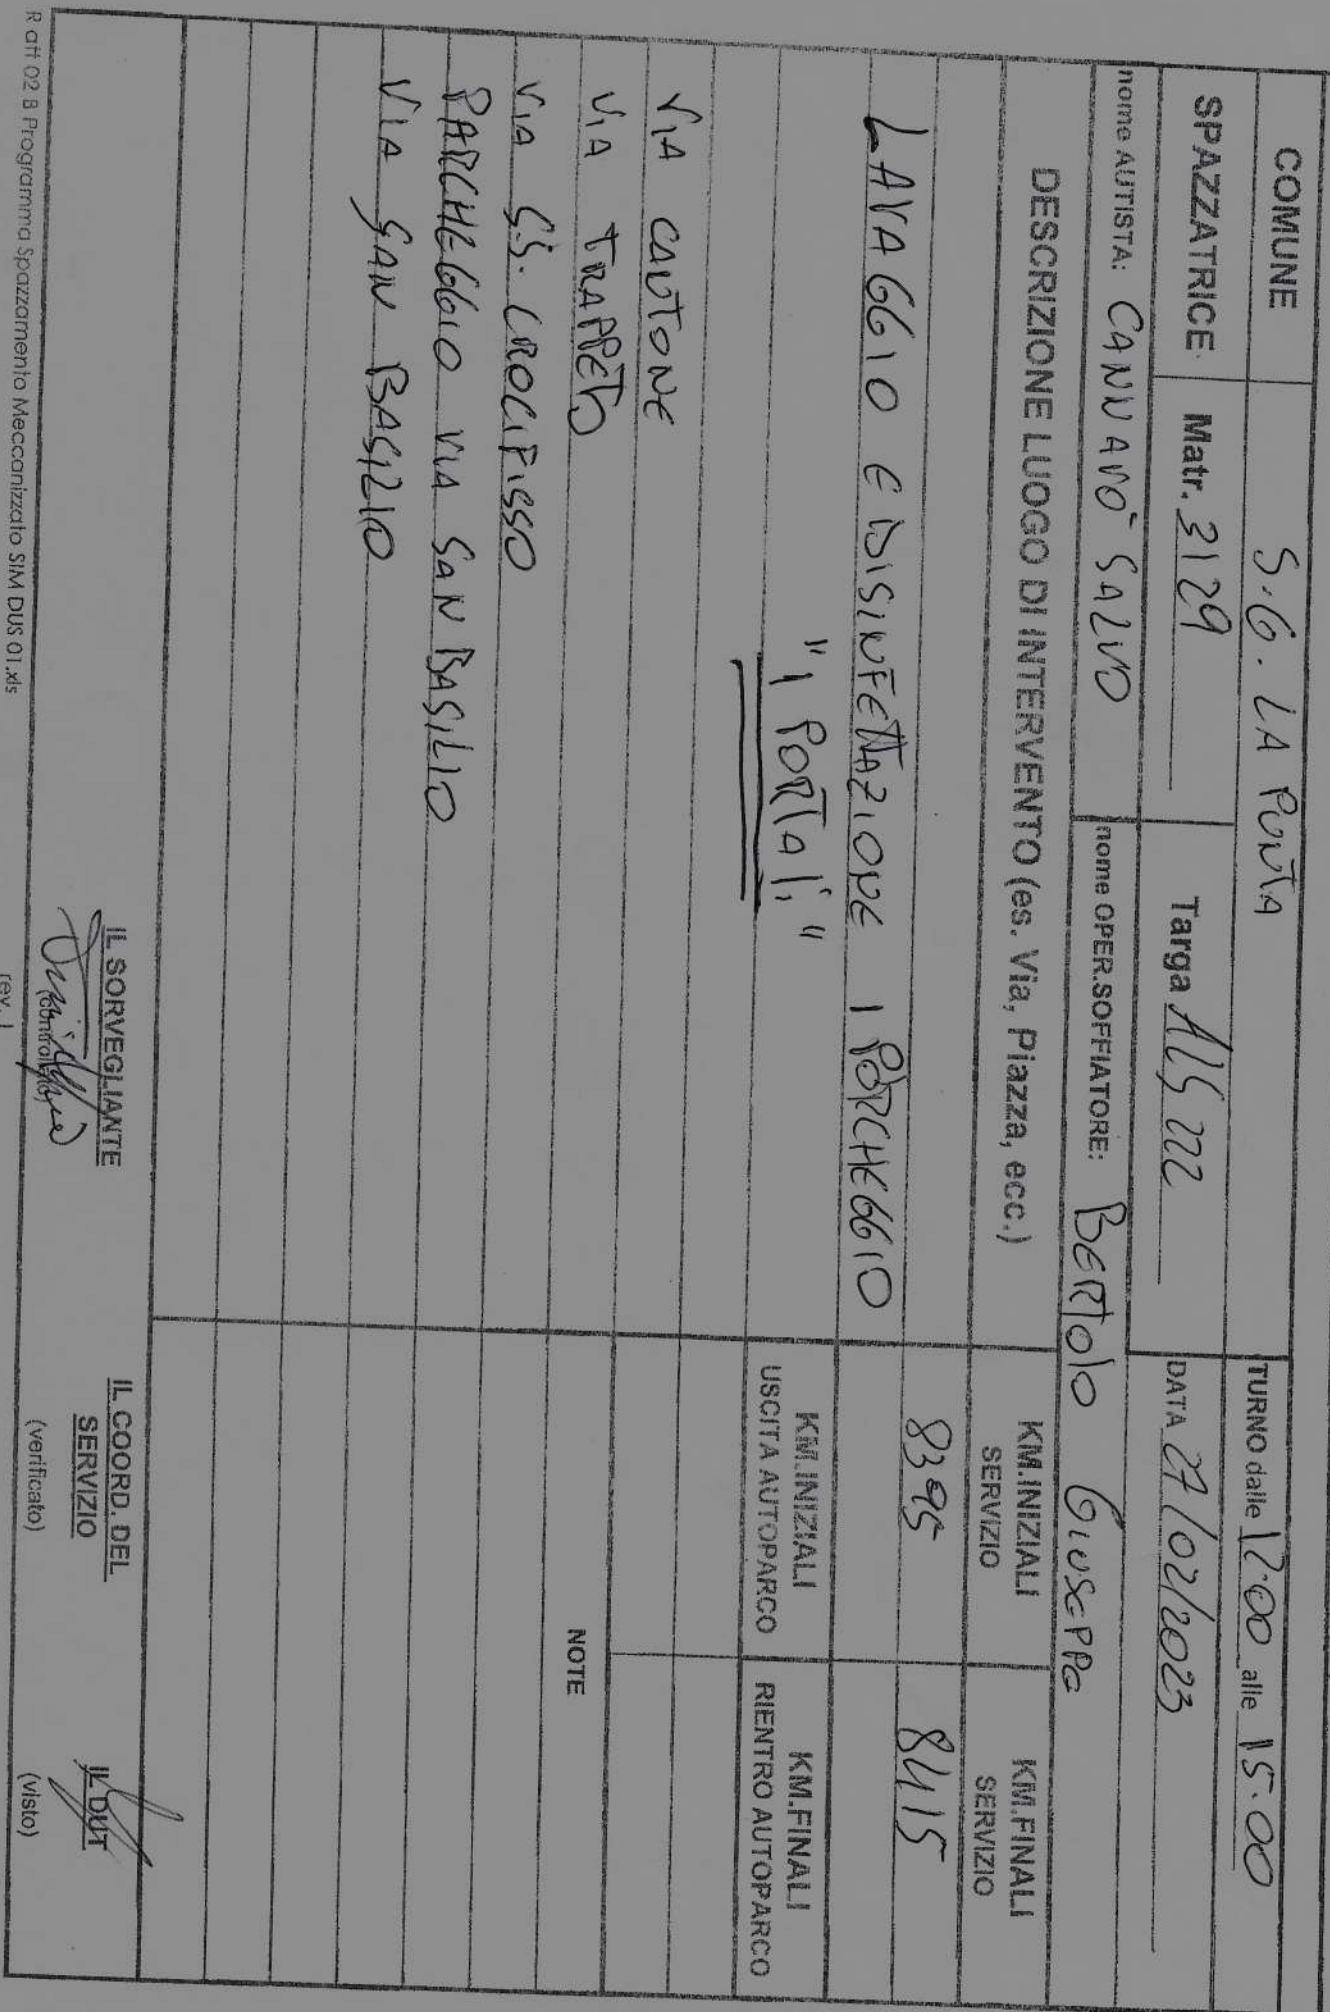 COMUNE S.G. LA PUNTA TURNO dalle 12.00 alle 15.00
SPAZZATRICE Matr. 3129 Targa ALG 222 DATA 27/02/2023
nome AUTISTA: CANNAVO' SALVO nome OPER.SOFFIATORE: BERTOLO GIUSEPPE
DESCRIZIONE LUOGO DI INTERVENTO (es. Via, Piazza, ecc.) KM.INIZIALI SERVIZIO KM.FINALI SERVIZIO
8395 8415
LAVAGGIO E DISINFETTAZIONE I PORCHEGGIO
"I PORTALI" KM.INIZIALI USCITA AUTOPARCO KM.FINALI RIENTRO AUTOPARCO
VIA CAUTONE
VIA TRAPPETO NOTE
VIA SS. CROCIFISSO
PARCHEGGIO VIA SAN BASILIO
VIA SAN BASILIO
IL SORVEGLIANTE IL COORD. DEL SERVIZIO IL DUT
(controllato) (verificato) (visto)
R att 02 B Programma Spazzamento Meccanizzato SIM DUS 01.xls rev. 1